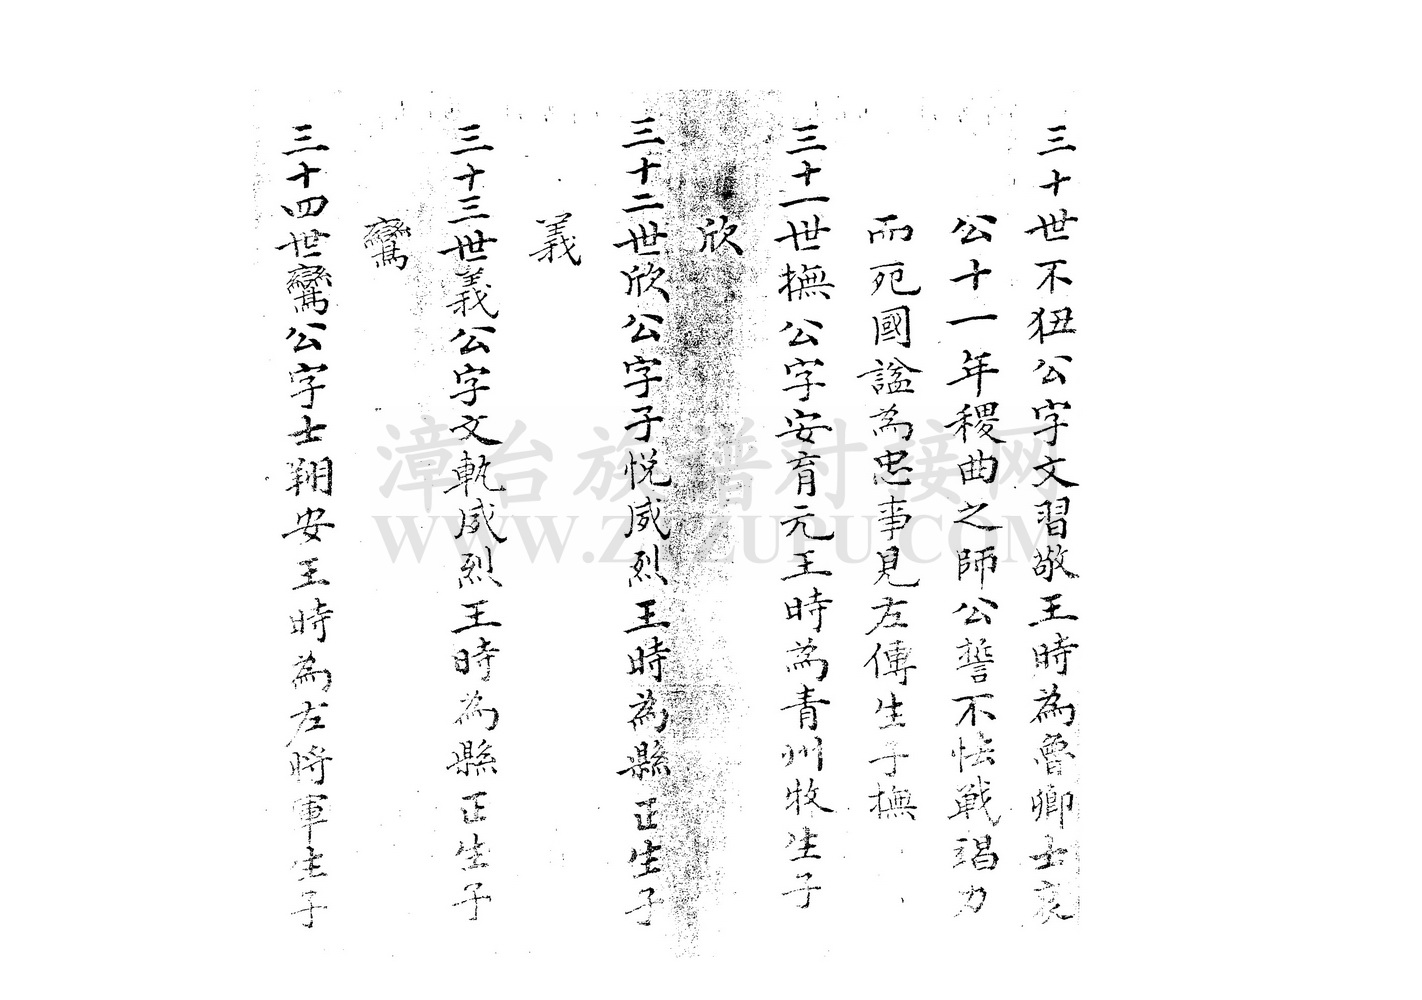 三十世不狃公字文習敬王時為魯卿士哀
公十一年稷曲之師公誓不怯戰竭力
而死國諡為忠事見左傳生子撫
三十一世撫公字安育元王時為青州牧生子
欣
三十二世欣公字子悦威烈王時為縣正生子
義
三十三世義公字文軌威烈王時為縣正生子
鸞
三十四世鸞公字士翔安王時為左將軍生子
漳台族谱对接网
WWW.ZTZUPU.COM